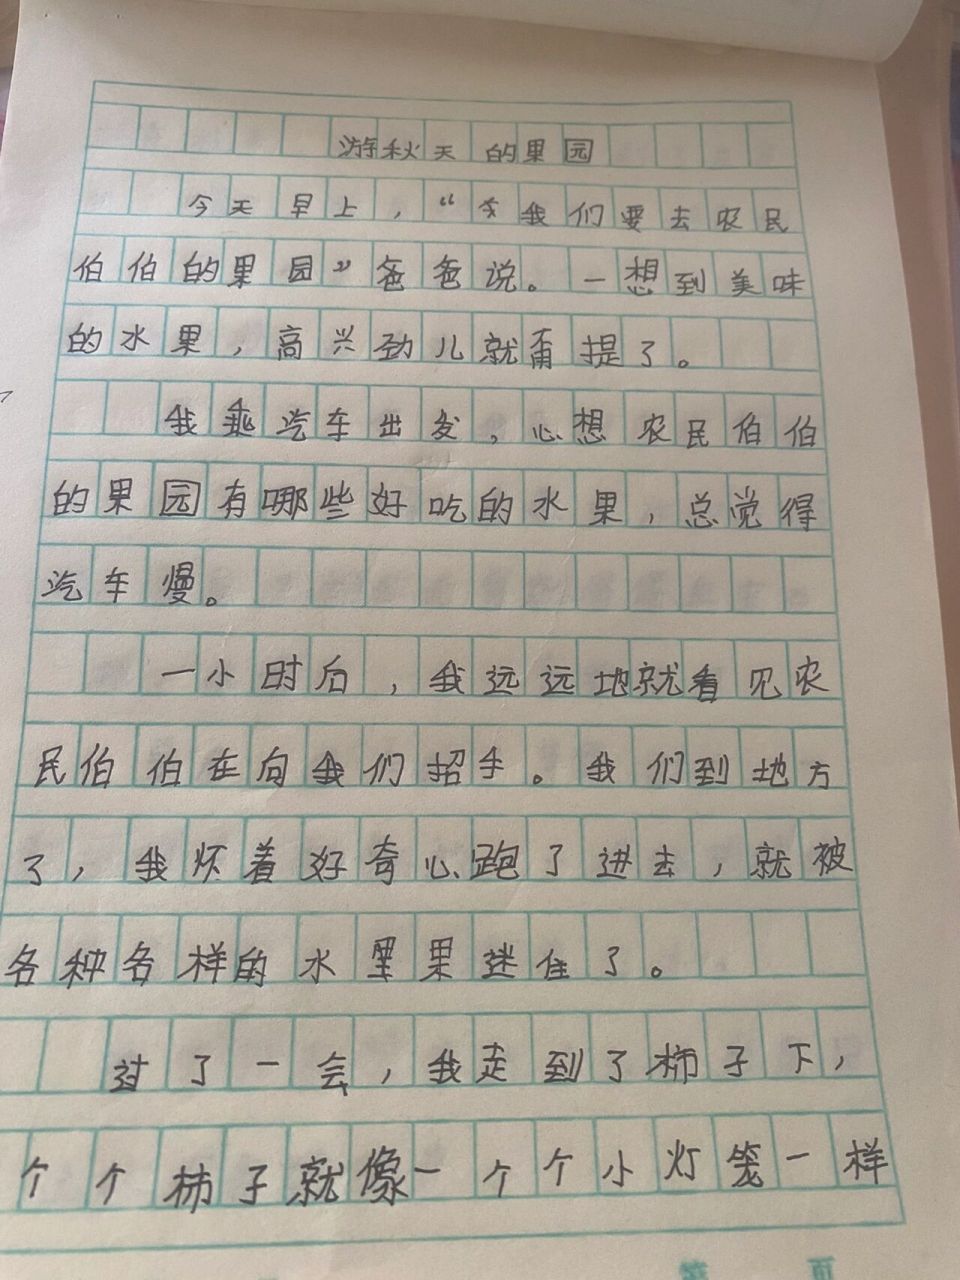 游秋天的果园
今天早上，“今我们要去农民
伯伯的果园”爸爸说。一想到美味
的水果，高兴劲儿就甭提了。
我乘汽车出发，心想农民伯伯
的果园有哪些好吃的水果，总觉得
汽车慢。
一小时后，我远远地就看见农
民伯伯在向我们招手。我们到地方
了，我怀着好奇心跑了进去，就被
各种各样的水里果迷住了。
过了一会，我走到了柿子下，
个个柿子就像一个个小灯笼一样